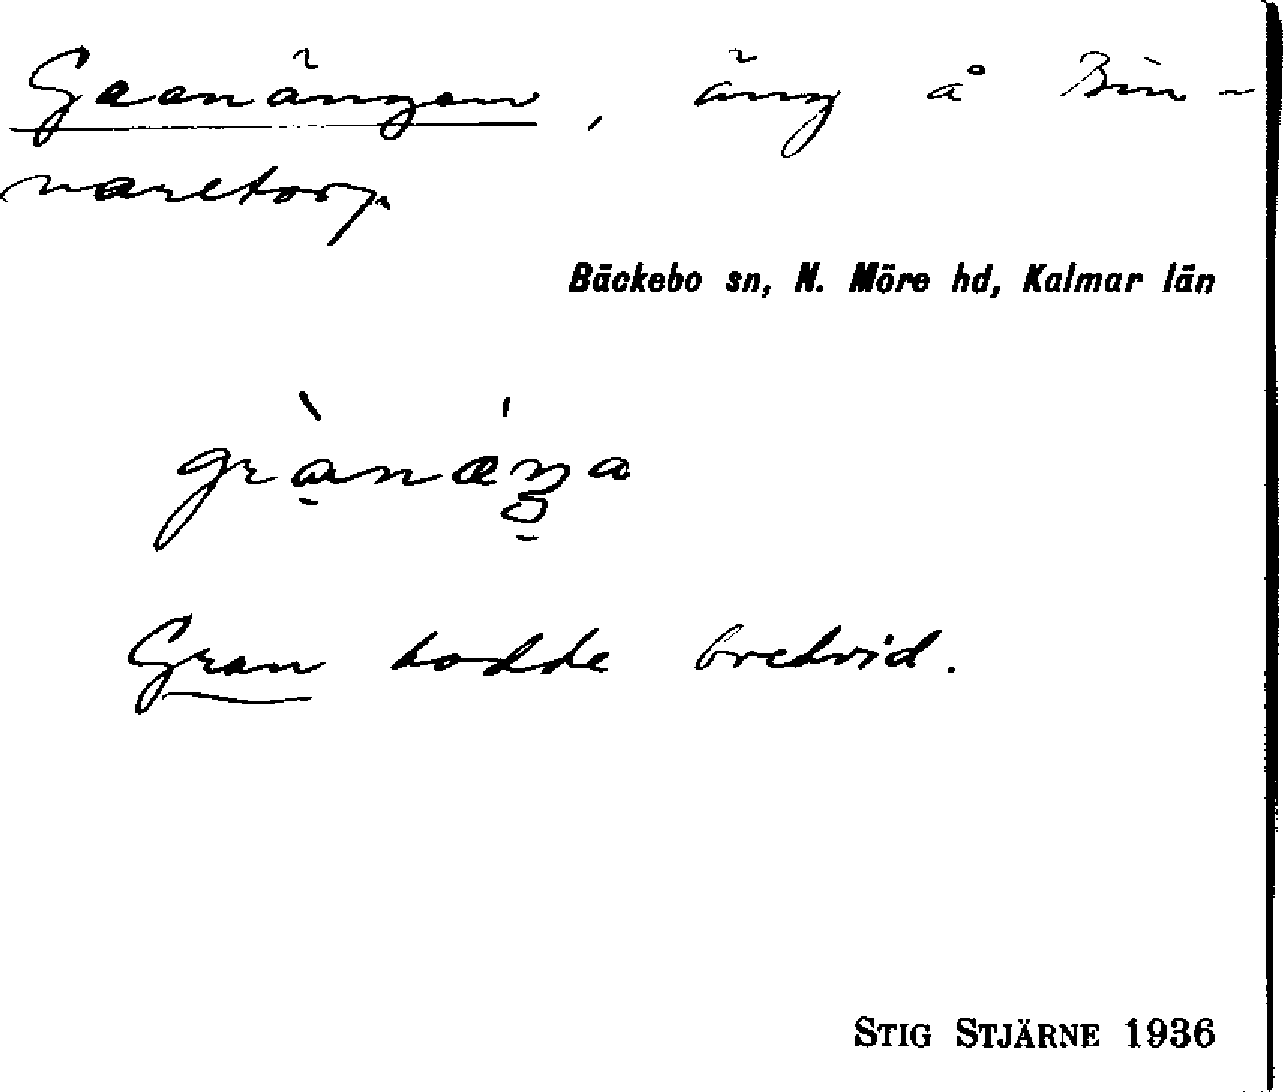 Granängen, äng å Bin-
naretorp.
Bäckebo sn, N. Möre hd, Kalmar län
Gran bodde bredvid.
STIG STJÄRNE 1936